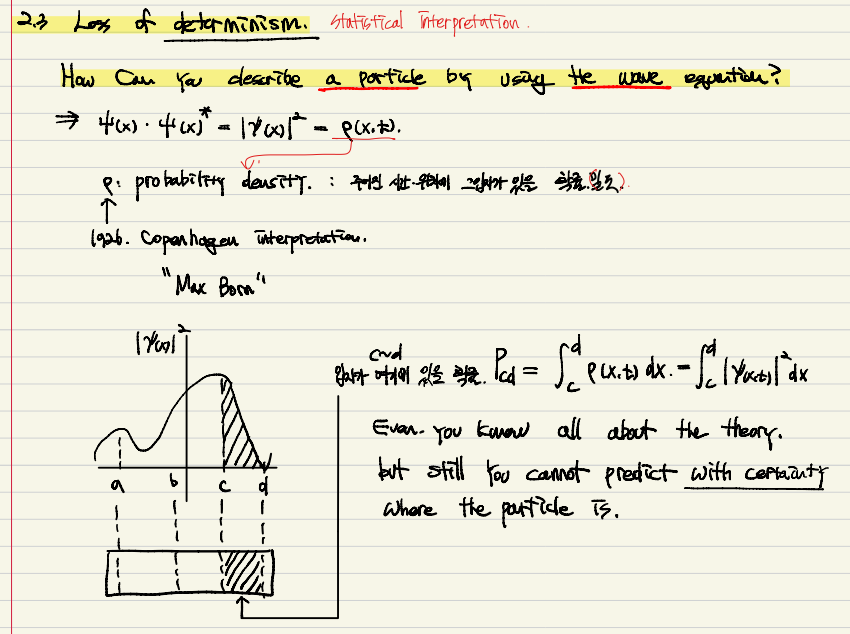 2.3 Loss of determinism. statistical interpretation.
How Can you describe a particle by using the wave equation?
⇒ ψ(x) · ψ(x)* = |ψ(x)|² = ρ(x,t).
ρ: probability density. : 주어진 시간·위치에 그입자가 있을 확률(밀도).
↑
1926. Copenhagen interpretation.
"Max Born"
|ψ(x)|²
a b c d
c~d
입자가 여기에 있을 확률. P_cd = ∫_c^d ρ(x,t) dx. = ∫_c^d |ψ(x,t)|² dx
Even. you know all about the theory.
but still you cannot predict with certainty
where the particle is.